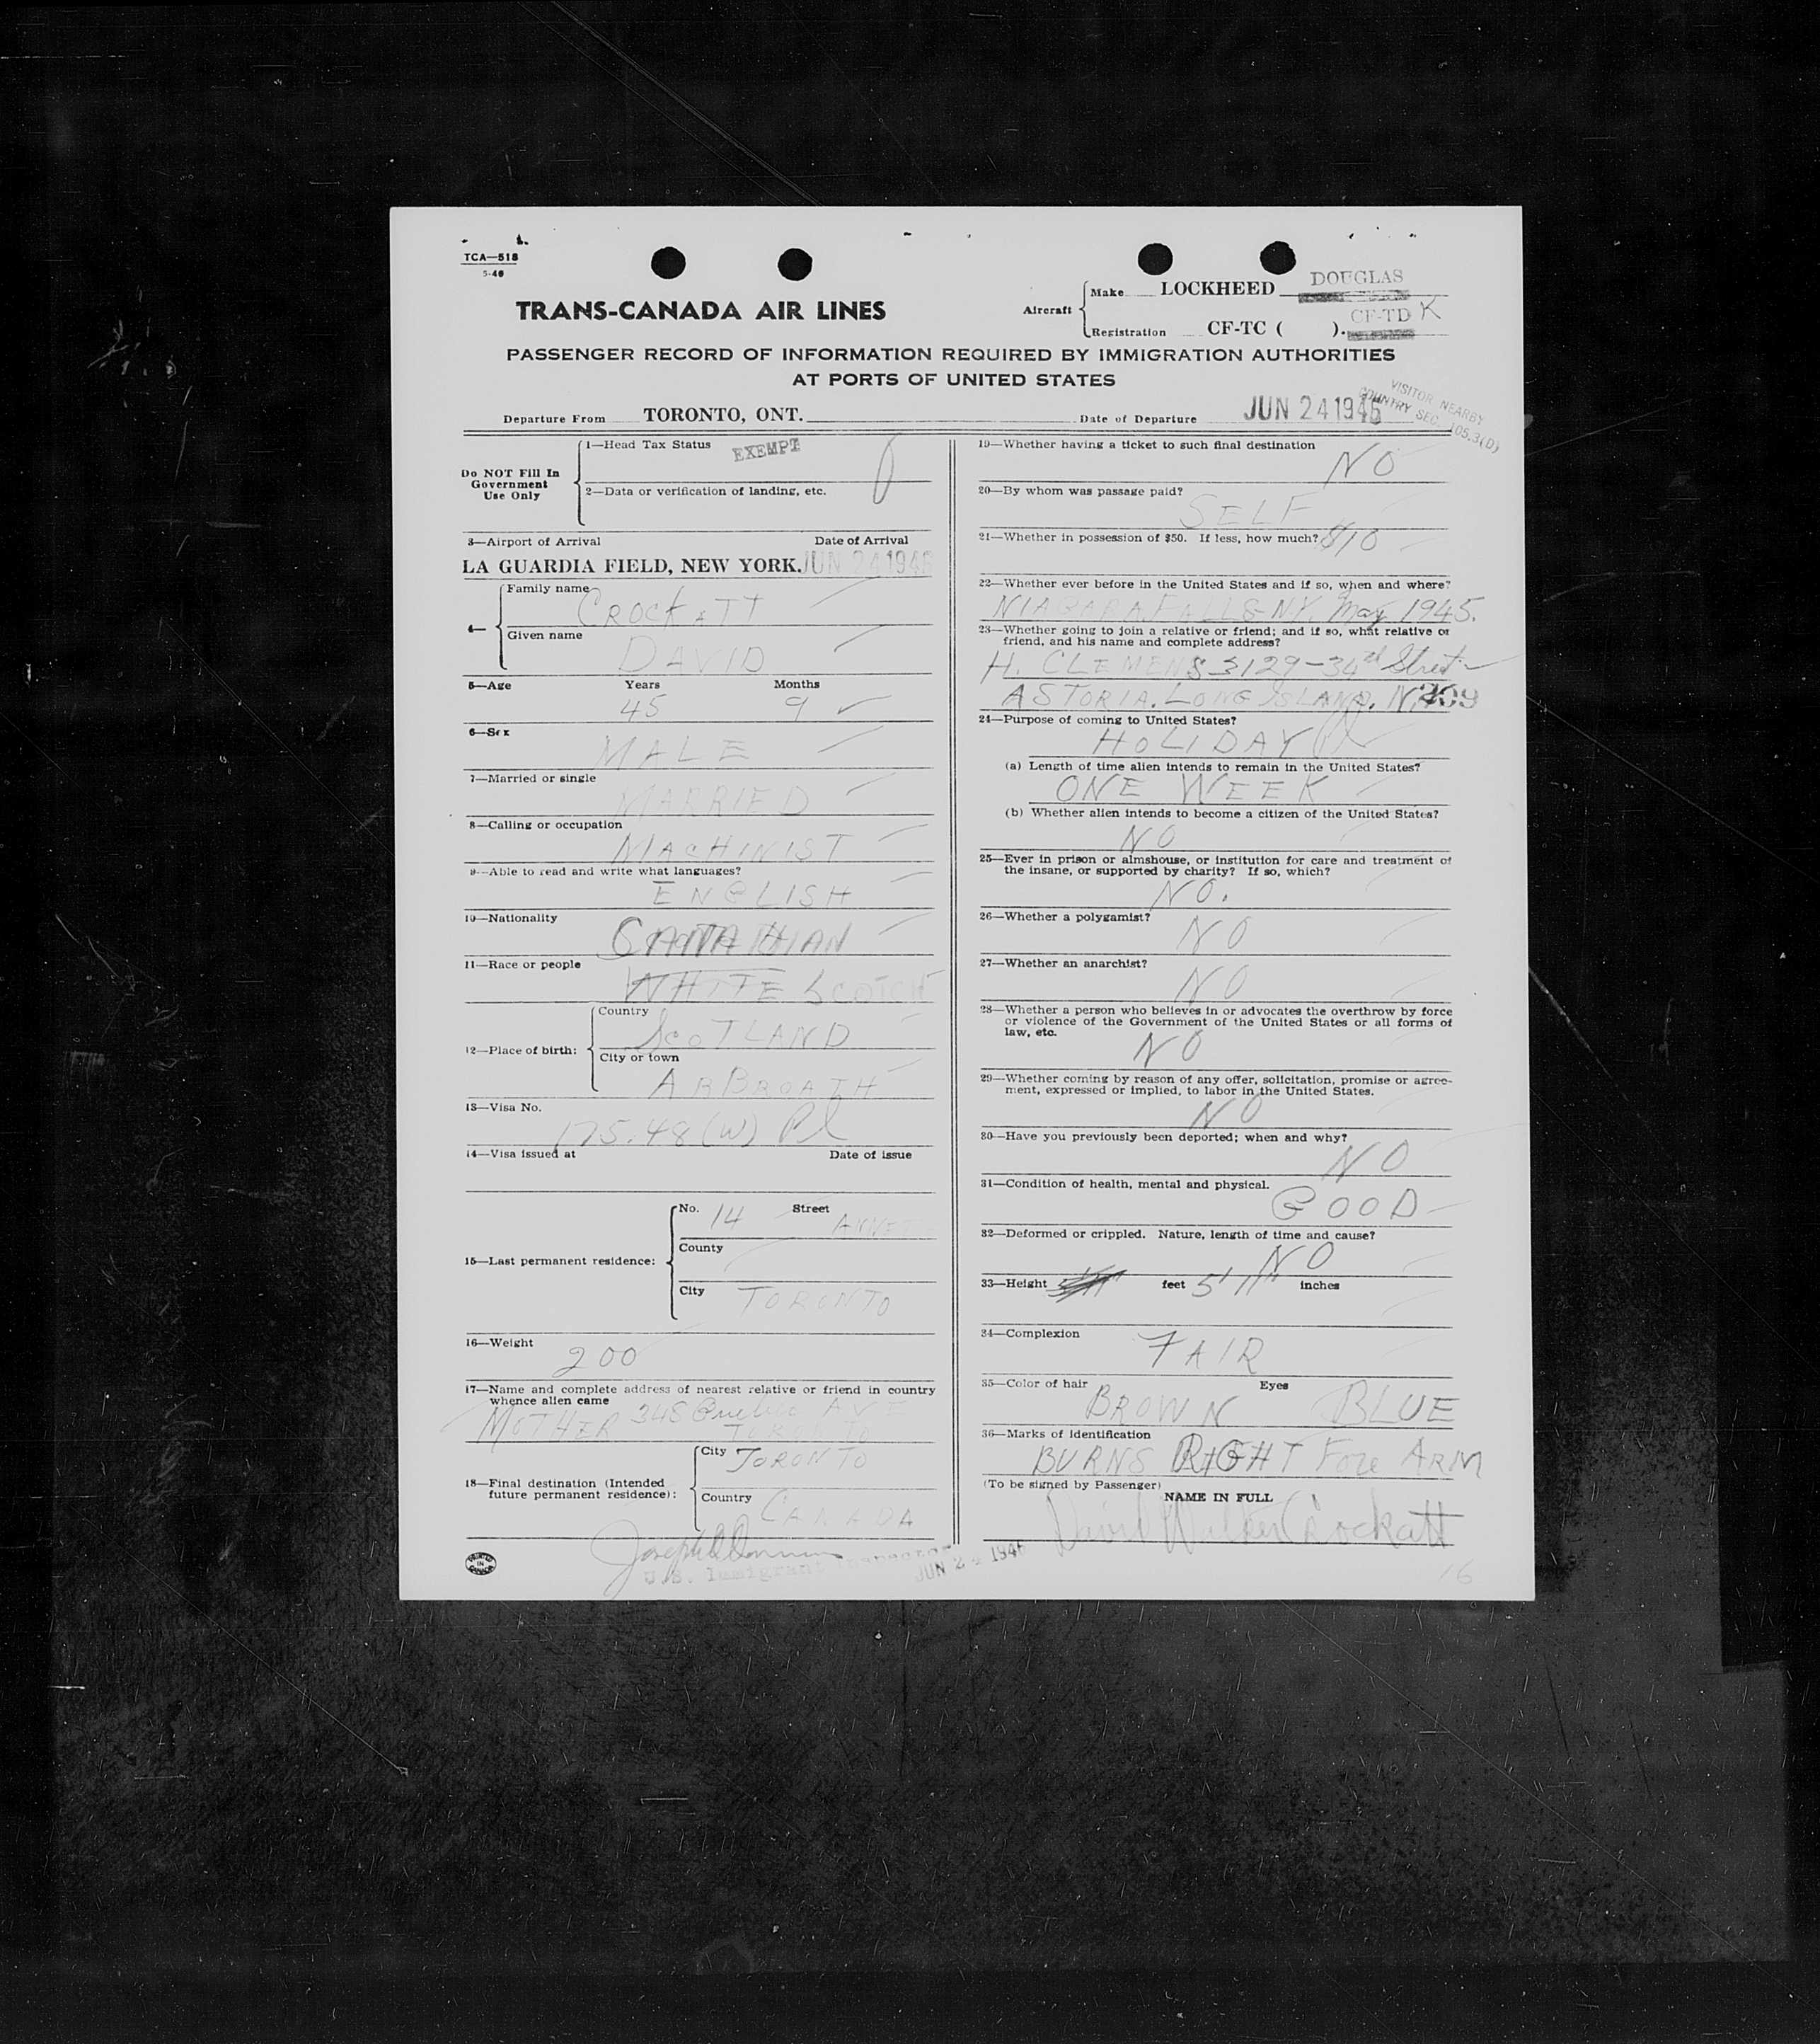 TCA—518
5-46
TRANS-CANADA AIR LINES
Aircraft
Make LOCKHEED DOUGLAS
Registration CF-TC ( ). CF-TD K
PASSENGER RECORD OF INFORMATION REQUIRED BY IMMIGRATION AUTHORITIES
AT PORTS OF UNITED STATES
VISITOR NEARBY
COUNTRY SEC. 105.3(D)
Departure From TORONTO, ONT. Date of Departure JUN 24 1946
Do NOT Fill In
Government
Use Only
1—Head Tax Status EXEMPT
2—Data or verification of landing, etc.
3—Airport of Arrival Date of Arrival
LA GUARDIA FIELD, NEW YORK. JUN 24 1946
4—
Family name
CROCKATT
Given name
DAVID
5—Age Years Months
45 9
6—Sex
MALE
7—Married or single
MARRIED
8—Calling or occupation
MACHINIST
9—Able to read and write what languages?
ENGLISH
10—Nationality
CANADIAN
11—Race or people
WHITE SCOTCH
12—Place of birth:
Country
SCOTLAND
City or town
ARBROATH
13—Visa No.
175.48 (W)
14—Visa issued at Date of issue
15—Last permanent residence:
No. 14 Street ANNETTE
County
City TORONTO
16—Weight
200
17—Name and complete address of nearest relative or friend in country
whence alien came
MOTHER 348 AVE
TORONTO
18—Final destination (Intended
future permanent residence):
City TORONTO
Country CANADA
U.S. Immigrant Inspector
JUN 24 1946
PRINTED
IN
CANADA
19—Whether having a ticket to such final destination
NO
20—By whom was passage paid?
SELF
21—Whether in possession of $50. If less, how much? $10
22—Whether ever before in the United States and if so, when and where?
NIAGARA FALLS NY. May 1945.
23—Whether going to join a relative or friend; and if so, what relative or
friend, and his name and complete address?
H. CLEMENS 3129-34th Street
ASTORIA. LONG ISLAND.
24—Purpose of coming to United States?
HOLIDAY
(a) Length of time alien intends to remain in the United States?
ONE WEEK
(b) Whether alien intends to become a citizen of the United States?
NO
25—Ever in prison or almshouse, or institution for care and treatment of
the insane, or supported by charity? If so, which?
NO.
26—Whether a polygamist?
NO
27—Whether an anarchist?
NO
28—Whether a person who believes in or advocates the overthrow by force
or violence of the Government of the United States or all forms of
law, etc.
NO
29—Whether coming by reason of any offer, solicitation, promise or agree-
ment, expressed or implied, to labor in the United States.
NO
30—Have you previously been deported; when and why?
NO
31—Condition of health, mental and physical.
GOOD
32—Deformed or crippled. Nature, length of time and cause?
NO
33—Height feet 5' 11" inches
34—Complexion
FAIR
35—Color of hair Eyes
BROWN BLUE
36—Marks of identification
BURNS RIGHT FORE ARM
(To be signed by Passenger)
NAME IN FULL
David Walker Crockatt
16